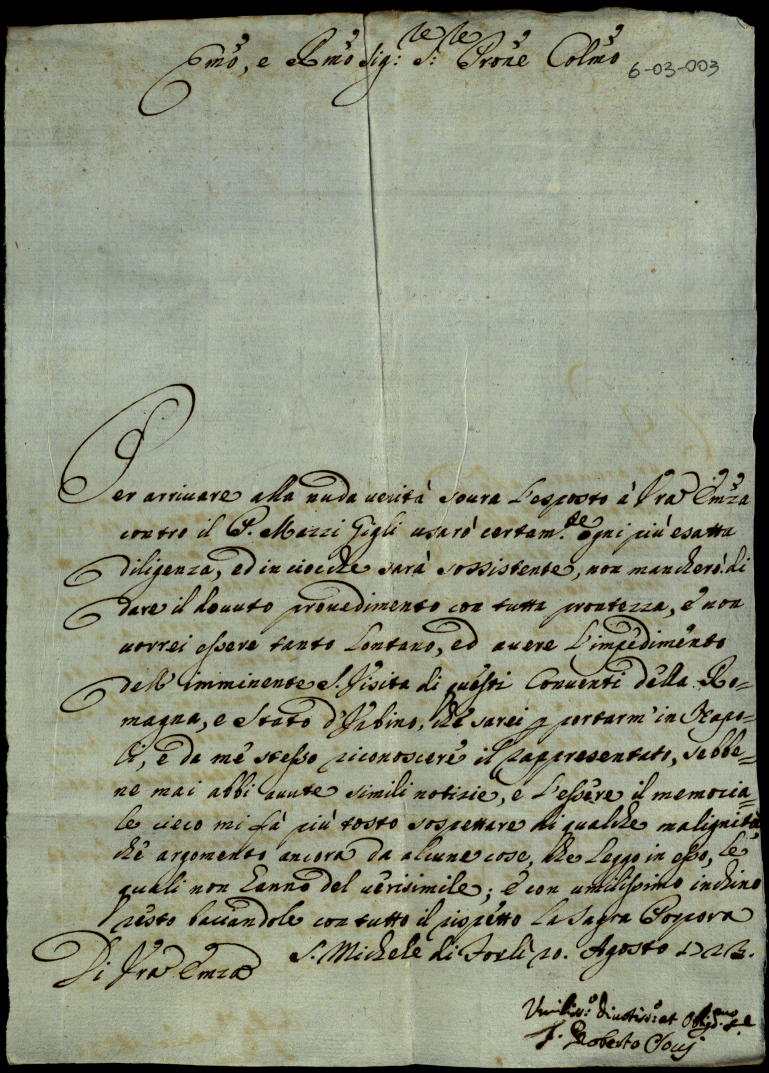 Emõ, e Rmõ Sig.r S.r Prõne Colmõ
6-03-003
Per arrivare alla nuda verità soura l'esposto à Vr̃a Em̃za
contro il P. Mazzi Gigli usarò certam.te ogni più esatta
diligenza, ed in ciocche sarà sossistente, non mancherò di
dare il dovuto provedimento con tutta prontezza, e non
vorrei essere tanto lontano, ed avere l'impedimento
dell'imminente S. Visita di questi Conventi della Ro=
magna, e Stato d'Urbino, che sarei p portarm'in Napo=
li, e da me stesso riconoscere il rappresentato, sebbe=
ne mai abbi avute simili notizie, e l'essere il memoria=
le cieco mi fà più tosto sospettare di qualche malignità
che argomento ancora da alcune cose, che leggo in esso, le
quali non hanno del verisimile; e con umilissimo inchino
resto baciandole con tutto il rispetto la Sagra Porpora
Di Vr̃a Em̃za S. Michele di Forlì 20. Agosto
Umiliss.o Divotiss.o et Obblig.mo
F. Roberto